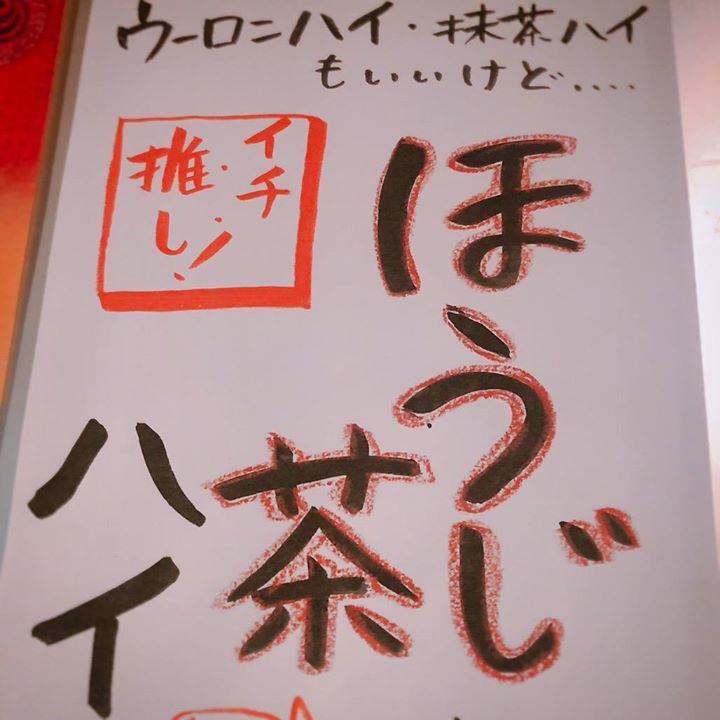 ウーロンハイ・抹茶ハイ
もいいけど....
ほうじ
茶
ハイ
イチ
推し!